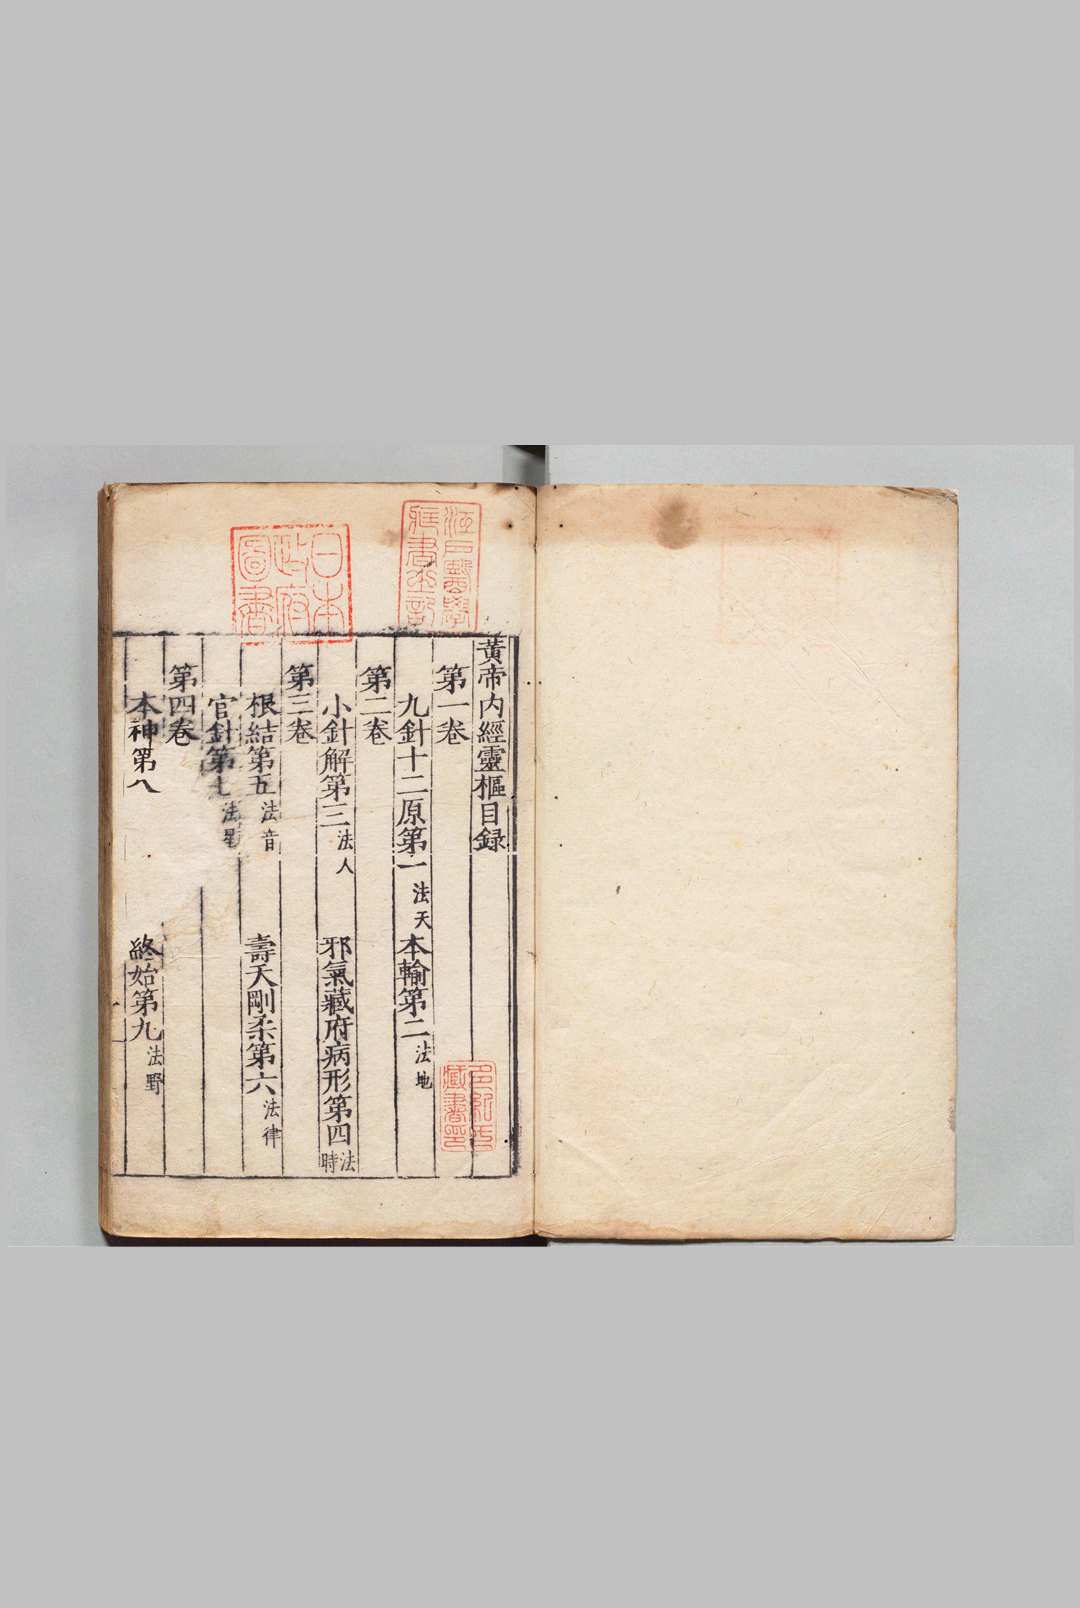 黃帝内經靈樞目録
第一卷
九針十二原第一 法天 本輸第二 法地
第二卷
小針解第三 法人 邪氣藏府病形第四 法時
第三卷
根結第五 法音 壽夭剛柔第六 法律
官針第七 法星
第四卷
本神第八 終始第九 法野
日本
政府
圖書
江戸醫學
藏書之記